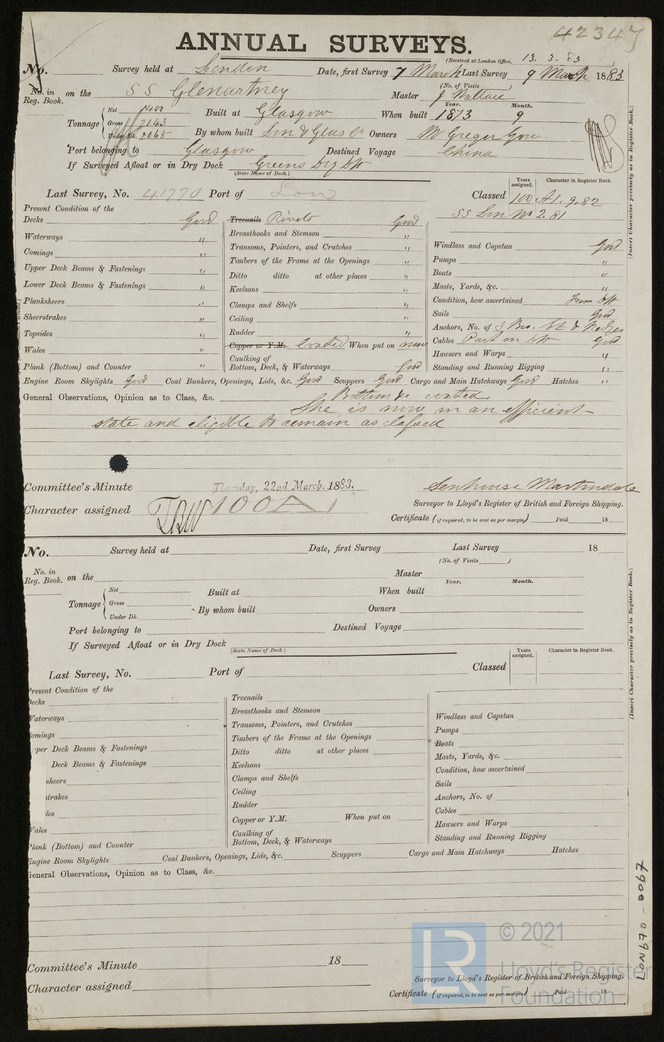 42347
ANNUAL SURVEYS.
(Received at London Office, 13.3.83)
No. Survey held at London Date, first Survey 7 March Last Survey 9 March 1883
(No. of Visits )
No. in Reg. Book. on the SS Glenartney Master J Wallace
Year. Month.
Tonnage Net 1400 Gross 2143 Under Dk. 2065 Built at Glasgow When built 1873 9
By whom built Lon & Glas Co Owners McGregor Gow
Port belonging to Glasgow Destined Voyage China
If Surveyed Afloat or in Dry Dock Greens Dry Dk
(State Name of Dock.)
Years assigned. Character in Register Book.
Last Survey, No. 41770 Port of Lon Classed 100 A1. 9.82
SS Lon No 2.81
(Insert Character precisely as in Register Book.)
Present Condition of the
Decks Good Treenails Rivets Good
Waterways " Breasthooks and Stemson " Windlass and Capstan Good
Comings " Transoms, Pointers, and Crutches " Pumps "
Upper Deck Beams & Fastenings " Timbers of the Frame at the Openings " Boats "
Lower Deck Beams & Fastenings " Ditto ditto at other places " Masts, Yards, &c. "
Planksheers " Keelsons " Condition, how ascertained From Dk
Sheerstrakes " Clamps and Shelfs " Sails Good
Topsides " Ceiling " Anchors, No. of
Wales " Rudder " Cables Part on Dk Good
Plank (Bottom) and Counter " Copper or Y.M. Coated When put on now Hawsers and Warps "
Caulking of Bottom, Deck, & Waterways Good Standing and Running Rigging "
Engine Room Skylights Good Coal Bunkers, Openings, Lids, &c. Good Scuppers Good Cargo and Main Hatchways Good Hatches "
General Observations, Opinion as to Class, &c. Bottom &c coated
She is now in an efficient
state and eligible to remain as classed
Committee's Minute Thursday, 22nd March, 1883.
Senhouse Martindale
Surveyor to Lloyd's Register of British and Foreign Shipping.
Character assigned 100A1
Certificate (if required, to be sent as per margin) Paid 18
No. Survey held at Date, first Survey Last Survey 18
(No. of Visits )
No. in Reg. Book. on the Master
Year. Month.
Tonnage Net Gross Under Dk. Built at When built
By whom built Owners
Port belonging to Destined Voyage
If Surveyed Afloat or in Dry Dock
(State Name of Dock.)
Years assigned. Character in Register Book.
Last Survey, No. Port of Classed
(Insert Character precisely as in Register Book.)
Present Condition of the
Decks Treenails
Waterways Breasthooks and Stemson Windlass and Capstan
Comings Transoms, Pointers, and Crutches Pumps
per Deck Beams & Fastenings Timbers of the Frame at the Openings Boats
Deck Beams & Fastenings Ditto ditto at other places Masts, Yards, &c.
sheers Keelsons Condition, how ascertained
strakes Clamps and Shelfs Sails
des Ceiling Anchors, No. of
Wales Rudder Cables
Plank (Bottom) and Counter Copper or Y.M. When put on Hawsers and Warps
Caulking of Bottom, Deck, & Waterways Standing and Running Rigging
Engine Room Skylights Coal Bunkers, Openings, Lids, &c. Scuppers Cargo and Main Hatchways Hatches
General Observations, Opinion as to Class, &c.
LON670-0067
LR © 2021 Lloyd's Register Foundation
Committee's Minute 18
Surveyor to Lloyd's Register of British and Foreign Shipping.
Character assigned
Certificate (if required, to be sent as per margin) Paid 18